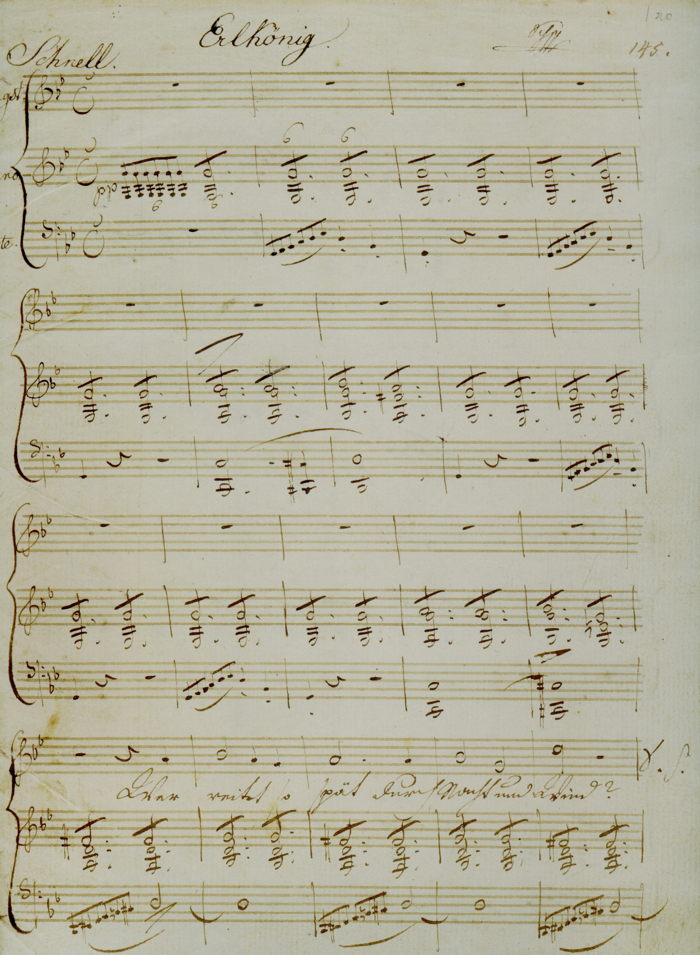 Erlkönig.
Schnell.
145.
6 6
pp
6 6
Wer reitet so spät durch Nacht und Wind?
V. S.